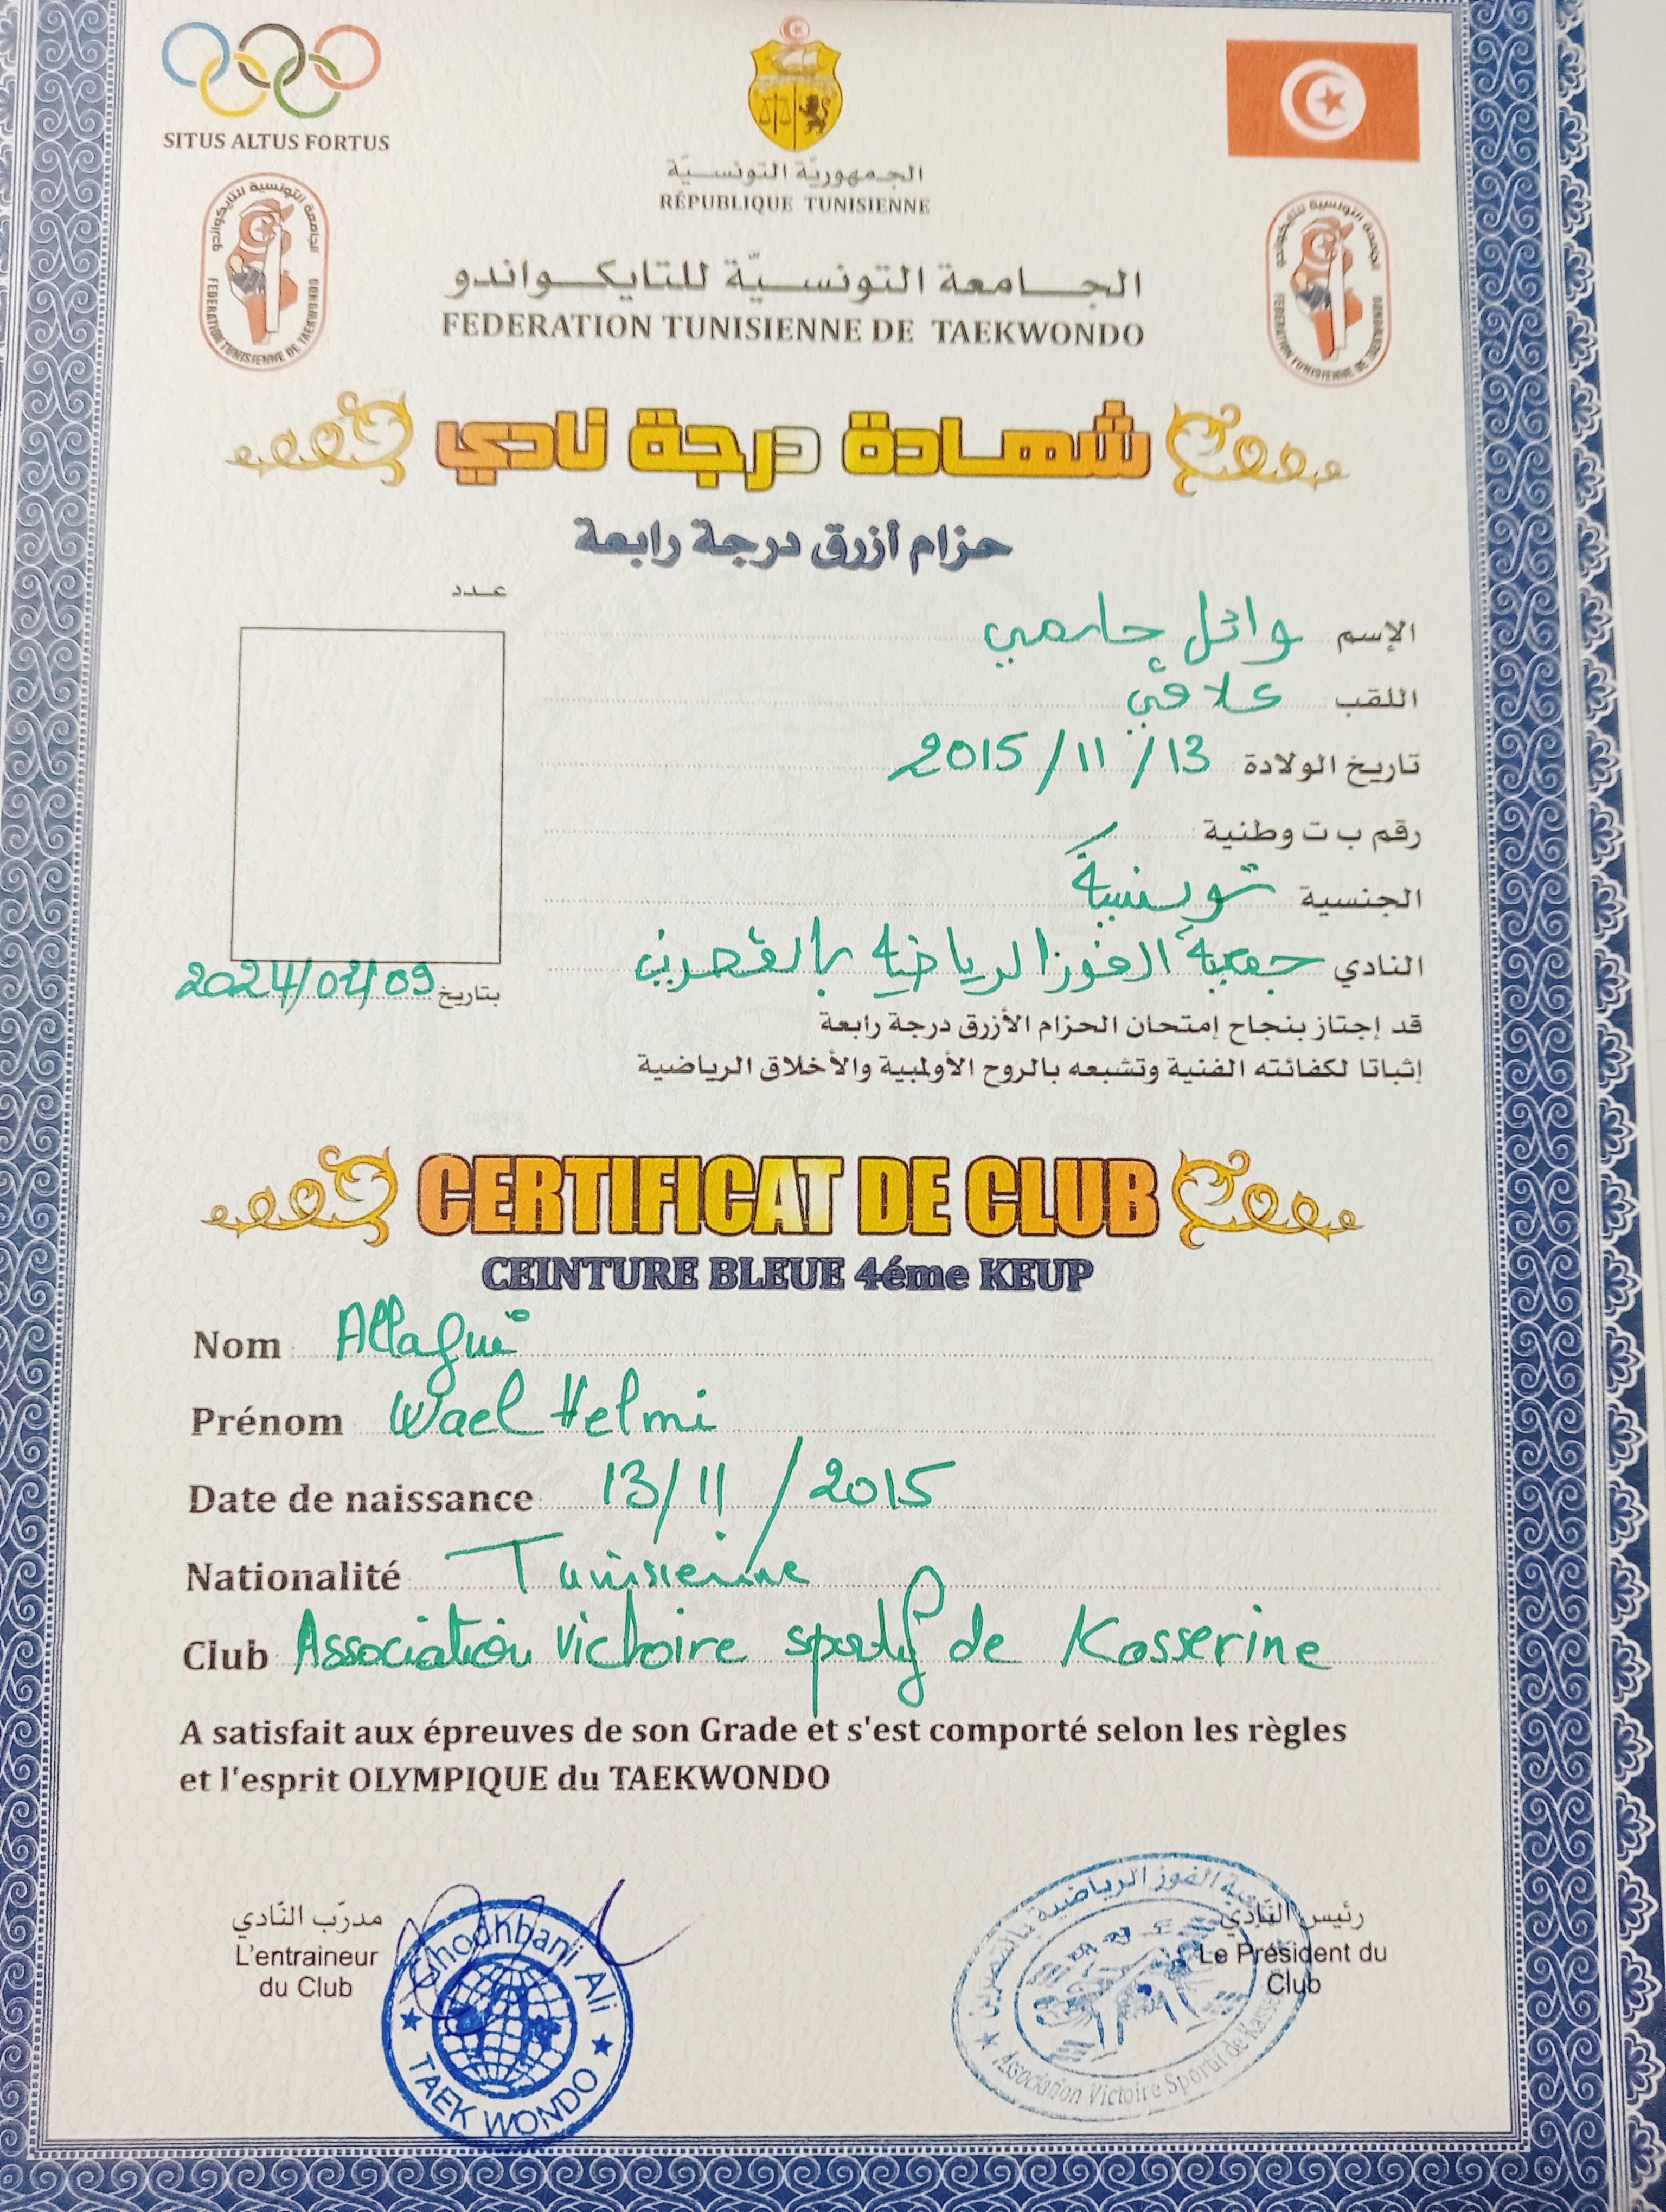 SITUS ALTUS FORTUS
الجمهوريّة التونسيّة
RÉPUBLIQUE TUNISIENNE
الجامعة التونسية للتايكواندو
FEDERATION TUNISIENNE DE TAEKWONDO
الجامعة التونسية للتايكواندو
FEDERATION TUNISIENNE DE TAEKWONDO
الجامعة التونسيّة للتايكواندو
FEDERATION TUNISIENNE DE TAEKWONDO
شهادة درجة نادي
حزام أزرق درجة رابعة
عدد
الإسم وائل حلمي
اللقب علاقي
تاريخ الولادة 13 / 11 / 2015
رقم ب ت وطنية
الجنسية تونسية
النادي جمعية الفوز الرياضية بالقصرين
بتاريخ 2024/02/09
قد إجتاز بنجاح إمتحان الحزام الأزرق درجة رابعة
إثباتا لكفائته الفنية وتشبعه بالروح الأولمبية والأخلاق الرياضية
CERTIFICAT DE CLUB
CEINTURE BLEUE 4éme KEUP
Nom Allagui
Prénom Wael Helmi
Date de naissance 13/11/2015
Nationalité Tunisienne
Club Association Victoire sportif de Kasserine
A satisfait aux épreuves de son Grade et s'est comporté selon les règles
et l'esprit OLYMPIQUE du TAEKWONDO
مدرّب النّادي
L'entraineur
du Club
Ghodhbani Ali
TAEK WONDO
رئيس النّادي
Le Président du
Club
جمعية الفوز الرياضية بالقصرين
Association Victoire Sportif de Kasserine